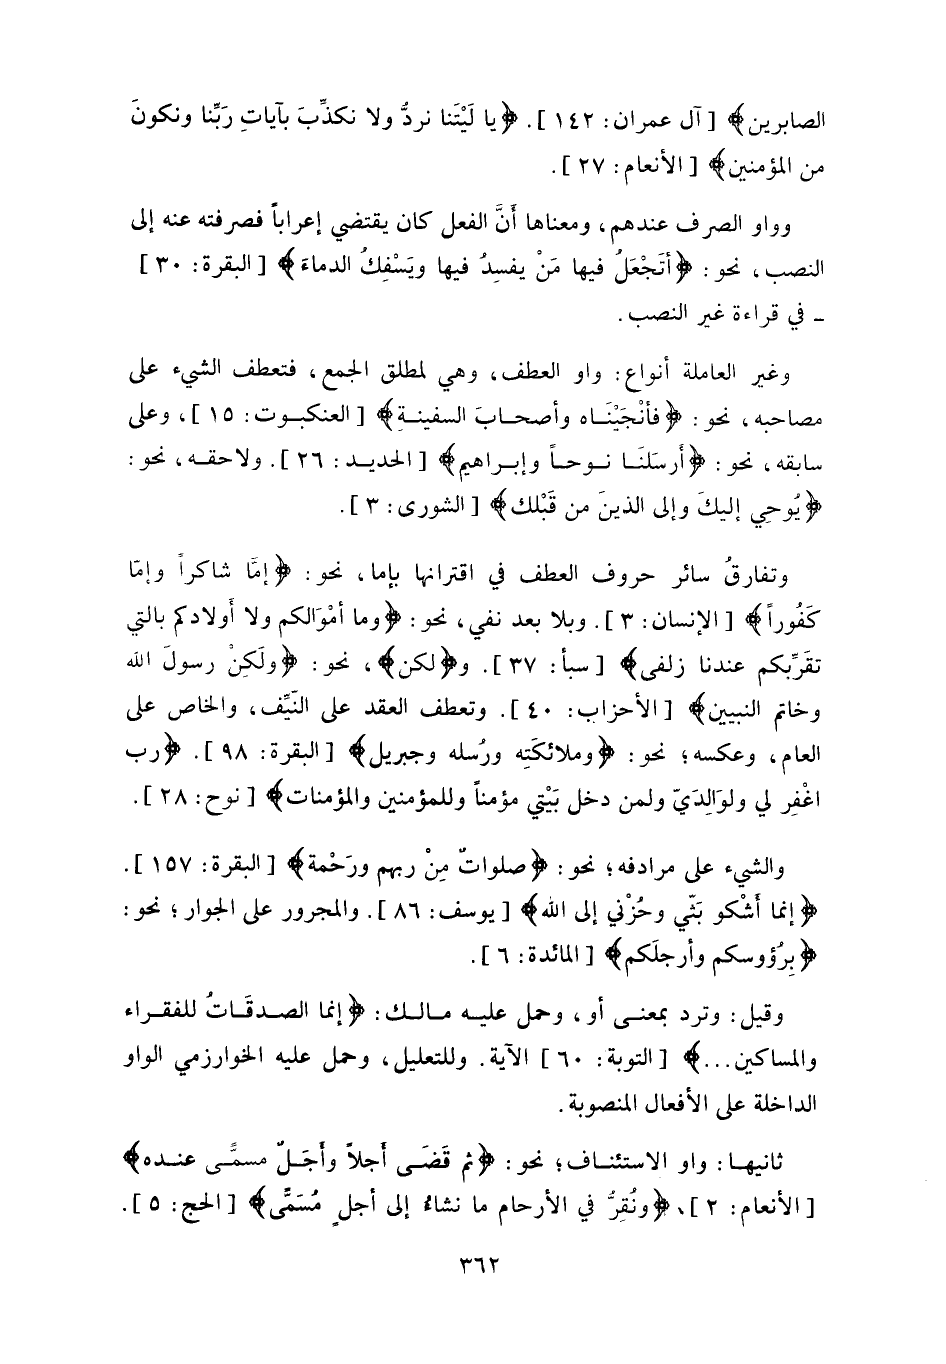 الصابرين﴾ [آل عمران: ١٤٢]. ﴿يا لَيْتَنا نردُّ ولا نكذِّبَ بآياتِ رَبِّنا ونكونَ
من المؤمنين﴾ [الأنعام: ٢٧].
وواو الصرف عندهم، ومعناها أنَّ الفعل كان يقتضي إعراباً فصرفته عنه إلى
النصب، نحو: ﴿أتَجْعَلُ فيها مَنْ يفسِدُ فيها ويَسْفِكُ الدماءَ﴾ [البقرة: ٣٠]
ـ في قراءة غير النصب.
وغير العاملة أنواع: واو العطف، وهي لمطلق الجمع، فتعطف الشيء على
مصاحبه، نحو: ﴿فأنْجَيْنَاه وأصحابَ السفينةِ﴾ [العنكبوت: ١٥]، وعلى
سابقه، نحو: ﴿أَرسَلنَا نوحاً وإبراهيم﴾ [الحديد: ٢٦]. ولاحقه، نحو:
﴿يُوحِي إليكَ وإلى الذينَ من قَبْلك﴾ [الشورى: ٣].
وتفارقُ سائر حروف العطف في اقترانها بإما، نحو: ﴿إمَّا شاكراً وإمّا
كَفُوراً﴾ [الإنسان: ٣]. وبلا بعد نفي، نحو: ﴿وما أمْوَالكم ولا أَولادكم بالتي
تقَرِّبكم عندنا زلفى﴾ [سبأ: ٣٧]. و﴿لكن﴾، نحو: ﴿ولَكِنْ رسولَ الله
وخاتم النبيين﴾ [الأحزاب: ٤٠]. وتعطف العقد على النَّيِّف، والخاص على
العام، وعكسه؛ نحو: ﴿وملائكَتِه ورُسله وجبريل﴾ [البقرة: ٩٨]. ﴿رب
اغْفِر لي ولوَالِدَيّ ولمن دخل بَيْتي مؤمناً وللمؤمنين والمؤمنات﴾ [نوح: ٢٨].
والشيء على مرادفه؛ نحو: ﴿صلواتٌ مِنْ ربهم ورَحْمة﴾ [البقرة: ١٥٧].
﴿إنما أَشْكو بَثّي وحُزْني إلى الله﴾ [يوسف: ٨٦]. والمجرور على الجوار؛ نحو:
﴿بِرُؤوسكم وأرجلَكم﴾ [المائدة: ٦].
وقيل: وترد بمعنى أو، وحمل عليه مالك: ﴿إنما الصدقَاتُ للفقراء
والمساكين...﴾ [التوبة: ٦٠] الآية. وللتعليل، وحمل عليه الخوارزمي الواو
الداخلة على الأفعال المنصوبة.
ثانيها: واو الاستئناف؛ نحو: ﴿ثم قَضَى أَجلاً وأَجَلٌ مسمًّى عنده﴾
[الأنعام: ٢]، ﴿ونُقِرُّ في الأرحام ما نشاءُ إلى أجلٍ مُسَمًّى﴾ [الحج: ٥].
٣٦٢